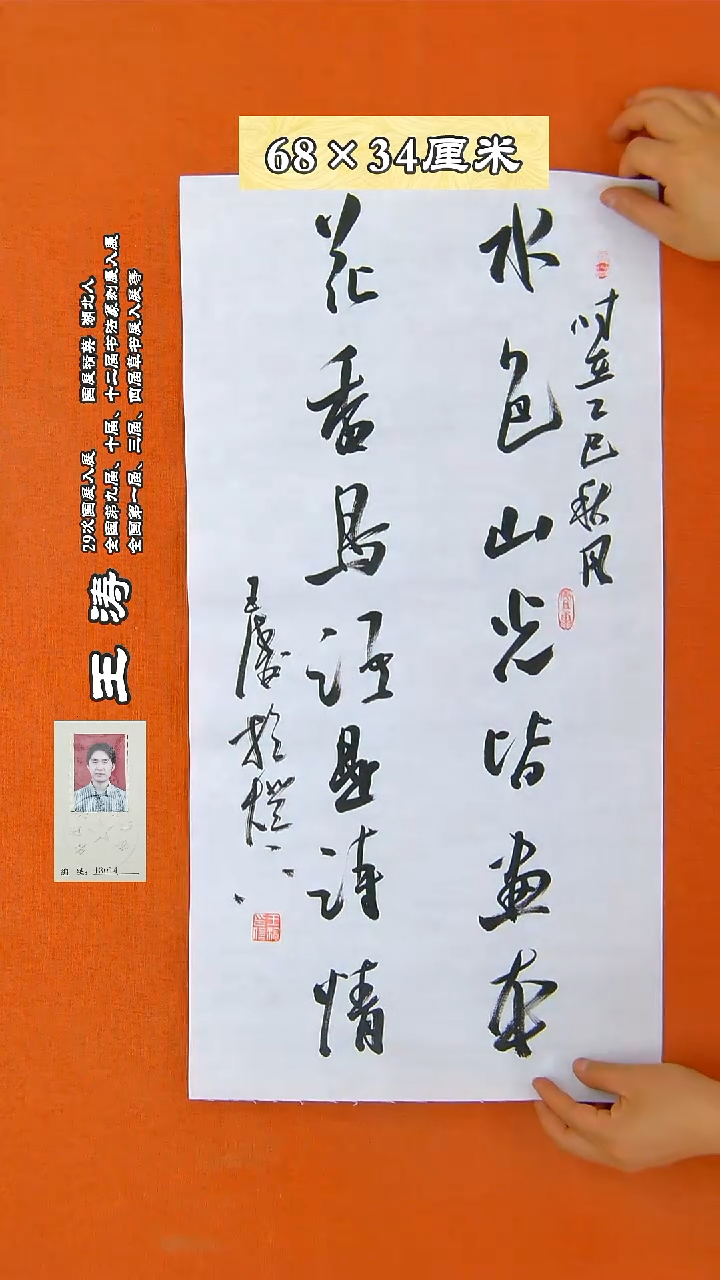 68×34厘米
时在乙巳秋风
水色山光皆画本
花香鸟语是诗情
王涛
29次国展入展 国展精英 湖北人
全国第九届、十届、十二届书法篆刻展入展
全国第一届、三届、四届草书展入展等
王涛